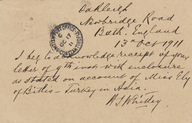 Oakleigh
Newbridge Road
Bath. England
13th Oct 1911
I beg to acknowledge receipt of your
letter of 9th inst with enclosure
as stated on account of Miss Ely
of Bitlis - Turkey in Asia.